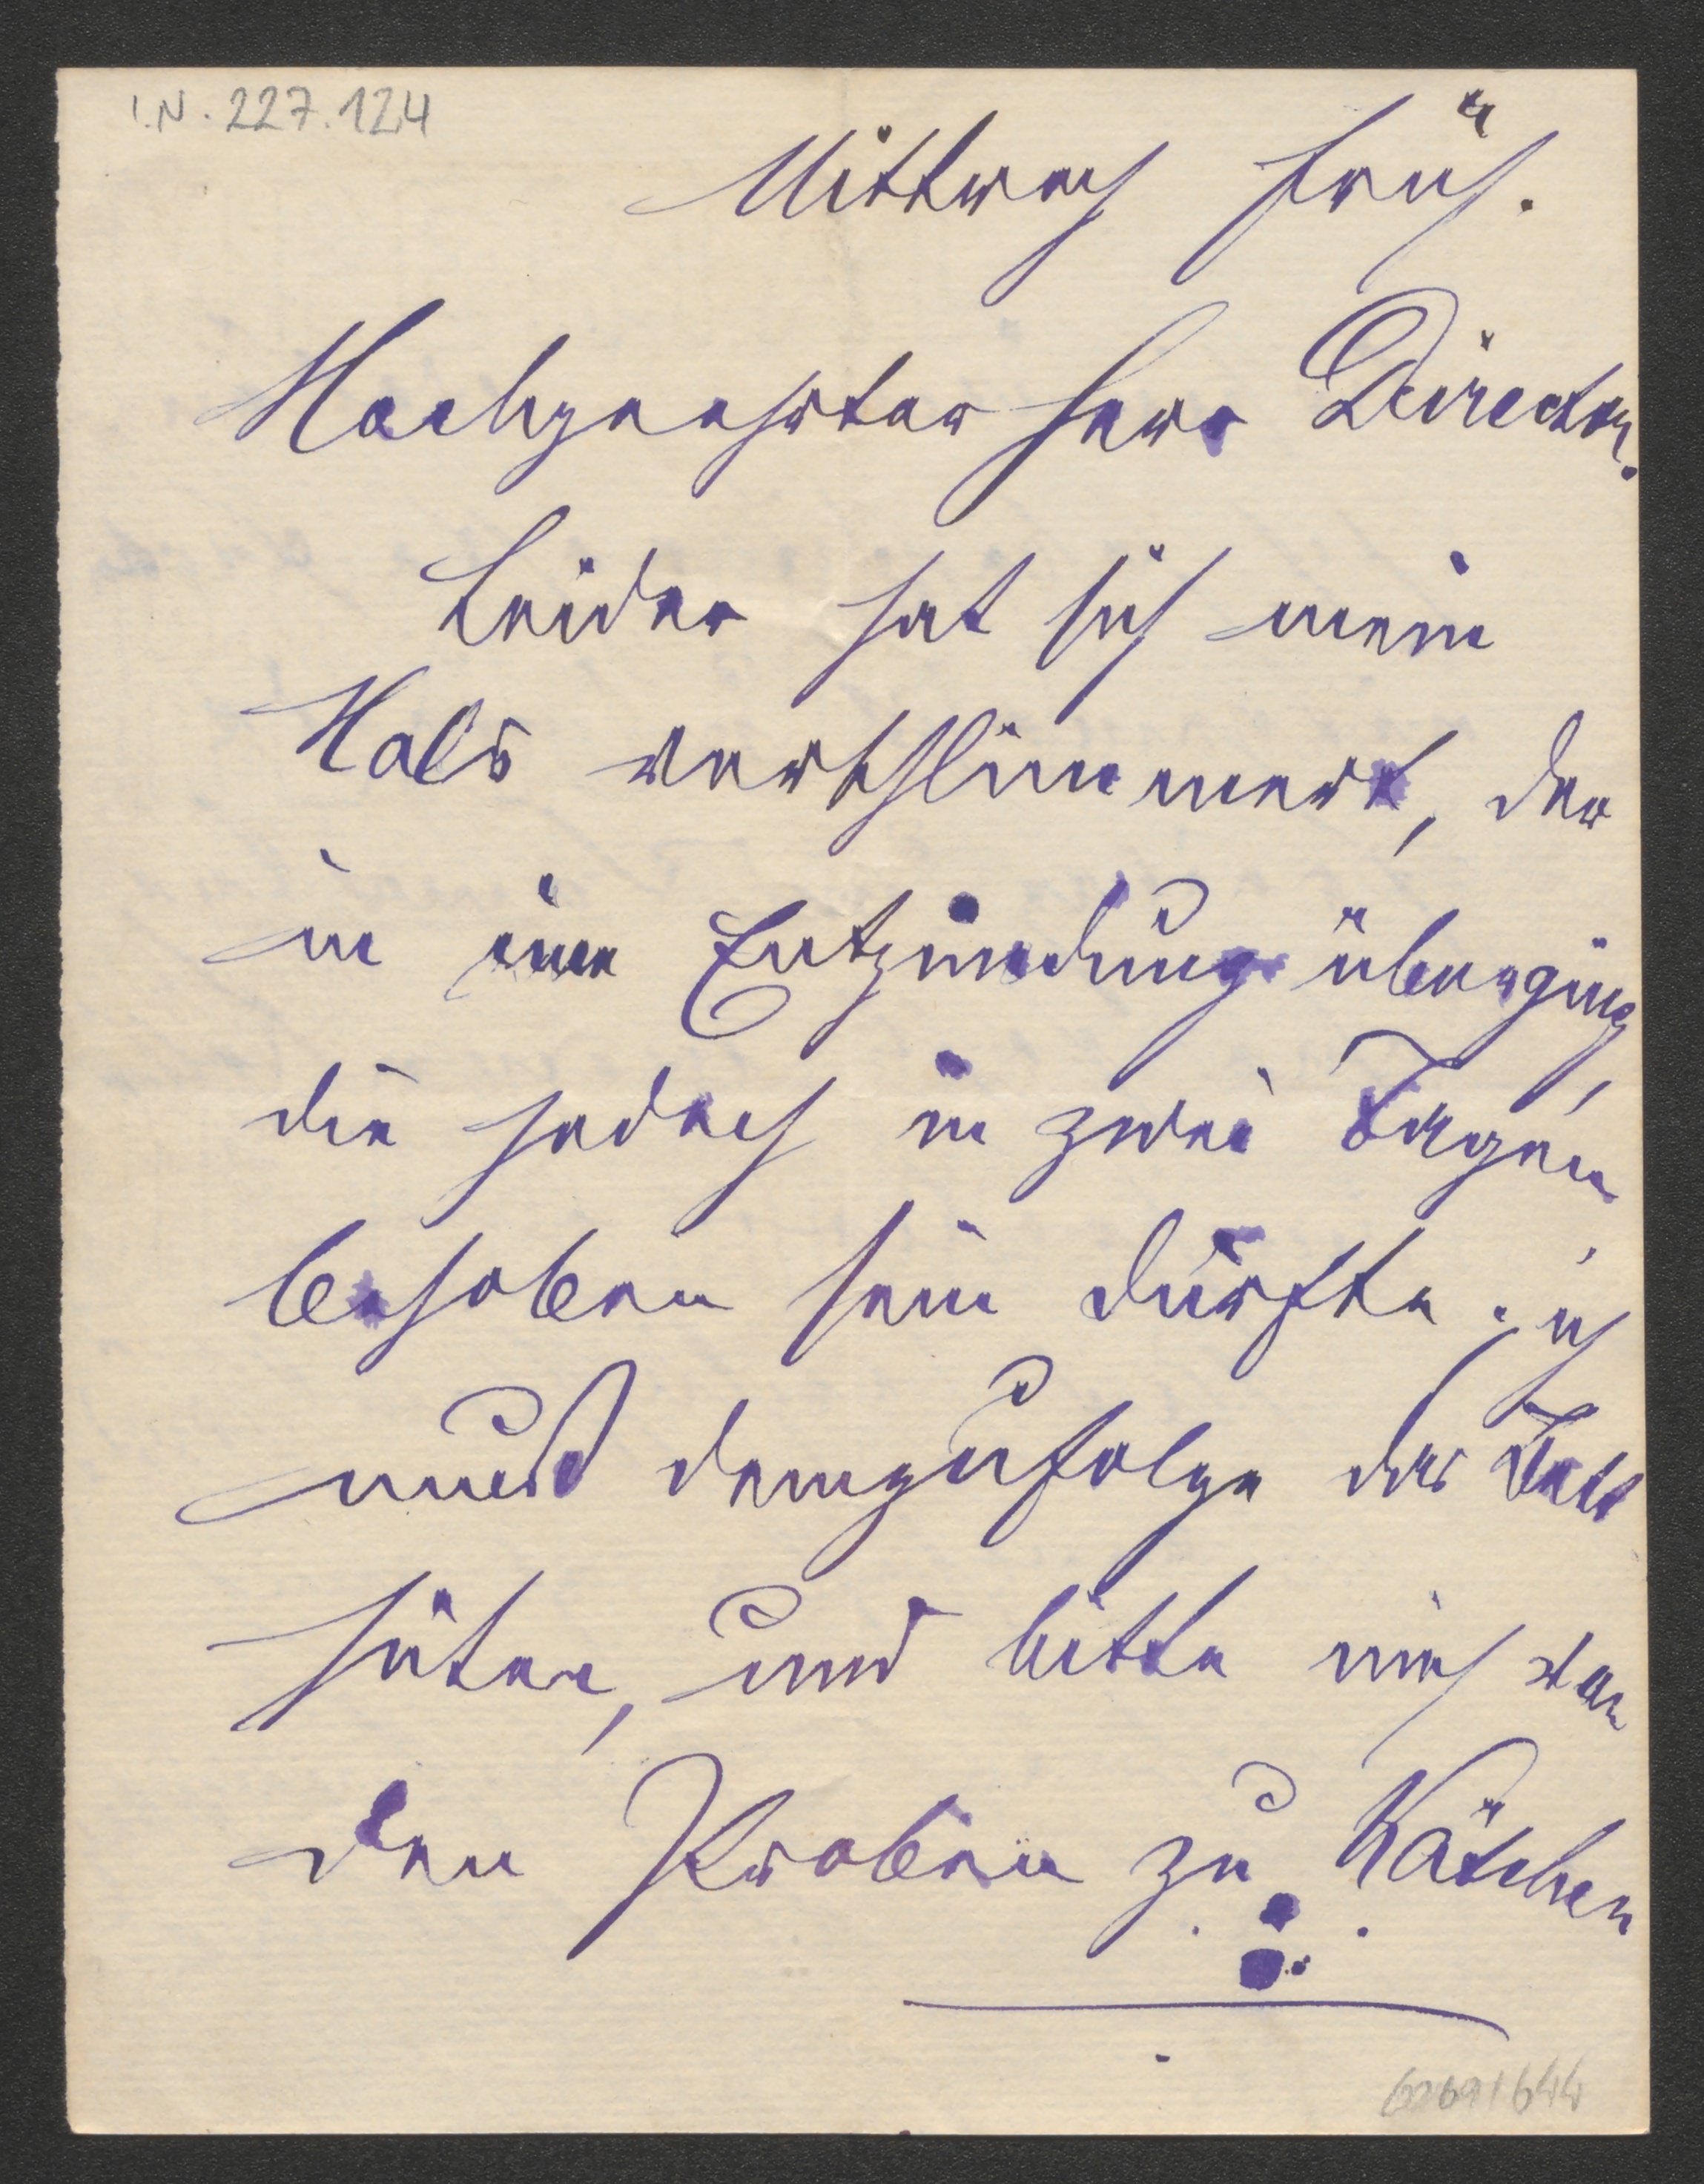 I.N. 227.124
Mittwoch früh.
Hochgeehrter Herr Director.
Leider hat sich mein
Hals verschlimmert, der
in eine Entzündung überging,
die jedoch in zwei Tagen
behoben sein dürfte; ich
muß demzufolge das Bett
hüten, und bitte mich von
den Proben zu Kätchen